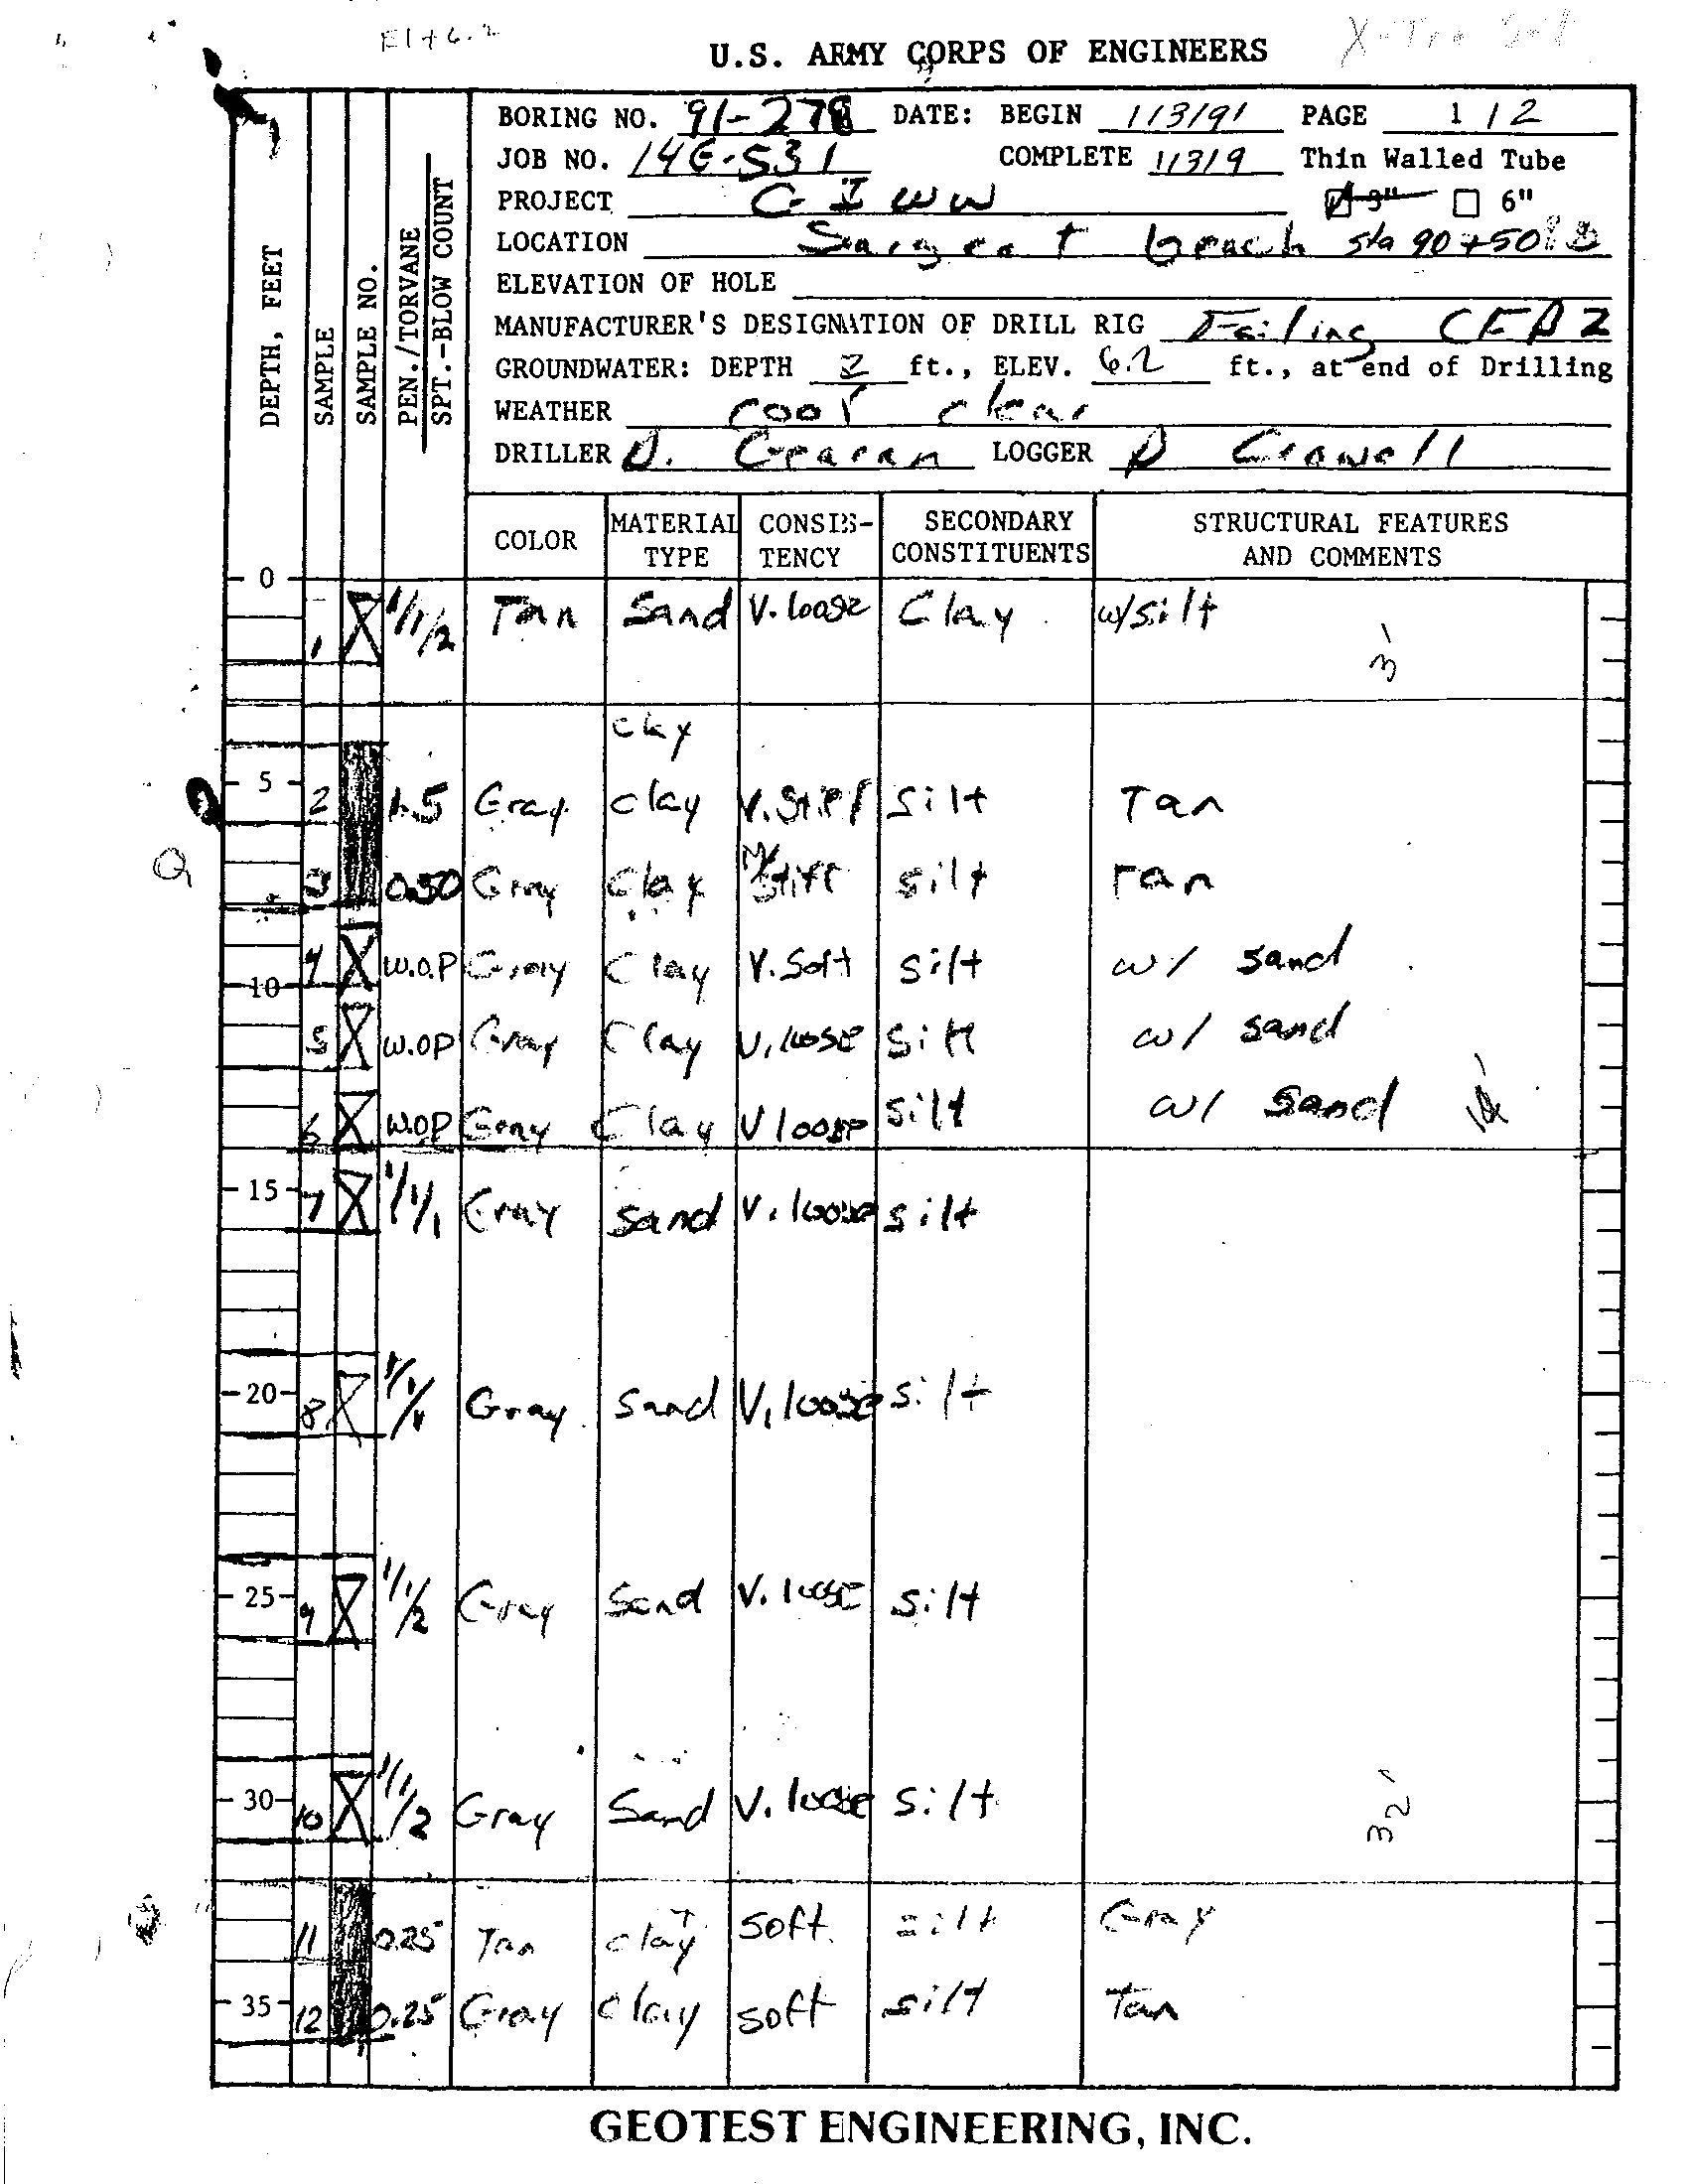 El +6.2
U.S. ARMY CORPS OF ENGINEERS
BORING NO. 91-278 DATE: BEGIN 1/3/91 PAGE 1 / 2
JOB NO. 14G-531 COMPLETE 1/3/9 Thin Walled Tube
PROJECT GIWW 3" 6"
LOCATION Sargent beach sta 90+50
ELEVATION OF HOLE
MANUFACTURER'S DESIGNATION OF DRILL RIG Failing
GROUNDWATER: DEPTH ft., ELEV. 6.2 ft., at end of Drilling
WEATHER cool clear
DRILLER D. Gearan LOGGER D Crowell
DEPTH, FEET
SAMPLE
SAMPLE NO.
PEN./TORVANE
SPT.-BLOW COUNT
COLOR MATERIAL TYPE CONSIS-TENCY SECONDARY CONSTITUENTS STRUCTURAL FEATURES AND COMMENTS
0
1 1/1/2 Tan Sand V. loose Clay w/silt
3'
clay
5
2 1.5 Gray clay V. Stiff silt Tan
Q
3 0.50 Gray Clay M/Stiff silt Tan
4 W.O.P Gray Clay V. Soft silt w/ sand
10
5 W.OP Gray Clay V. loose silt w/ sand
6 W.OP Gray Clay V loose silt w/ sand
15
7 1/1/1 Gray sand V. loose silt
20
8 1/1/1 Gray Sand V. loose silt
25
9 1/1/2 Gray Sand V. loose silt
30
10 1/1/2 Gray Sand V. loose silt
32'
11 0.25 Tan clay soft silt Gray
35
12 0.25 Gray clay soft silt Tan
GEOTEST ENGINEERING, INC.